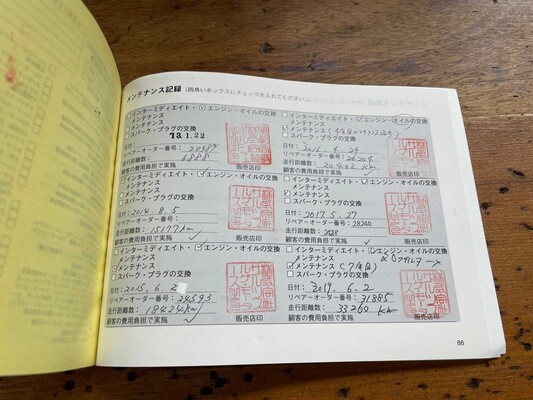 メンテナンス記録 (四角いボックスにチェックを入れてください。)
インターミディエイト・ エンジン・オイルの交換
メンテナンス
メンテナンス
スパーク・プラグの交換
13.1.22
リペアーオーダー番号: 20487
走行距離数: 6888
顧客の費用負担で実施
販売店印
インターミディエイト・ エンジン・オイルの交換
メンテナンス
メンテナンス
スパーク・プラグの交換
日付: 2016.4.24
リペアーオーダー番号: 26204
走行距離数: km
顧客の費用負担で実施
販売店印
インターミディエイト・ エンジン・オイルの交換
メンテナンス
メンテナンス
スパーク・プラグの交換
日付: 2014.8.5
リペアーオーダー番号:
走行距離数: 15177km
顧客の費用負担で実施
販売店印
インターミディエイト・ エンジン・オイルの交換
メンテナンス
メンテナンス
スパーク・プラグの交換
日付: 2017.5.27
リペアーオーダー番号: 28240
走行距離数:
顧客の費用負担で実施
販売店印
インターミディエイト・ エンジン・オイルの交換
メンテナンス
メンテナンス
スパーク・プラグの交換
日付: 2015.6.2
リペアーオーダー番号: 24593
走行距離数: 18424km
顧客の費用負担で実施
販売店印
インターミディエイト・ エンジン・オイルの交換
メンテナンス
メンテナンス (7年目)
スパーク・プラグの交換
日付: 2019.6.2
リペアーオーダー番号: 31885
走行距離数: 33260 km
顧客の費用負担で実施
販売店印
88